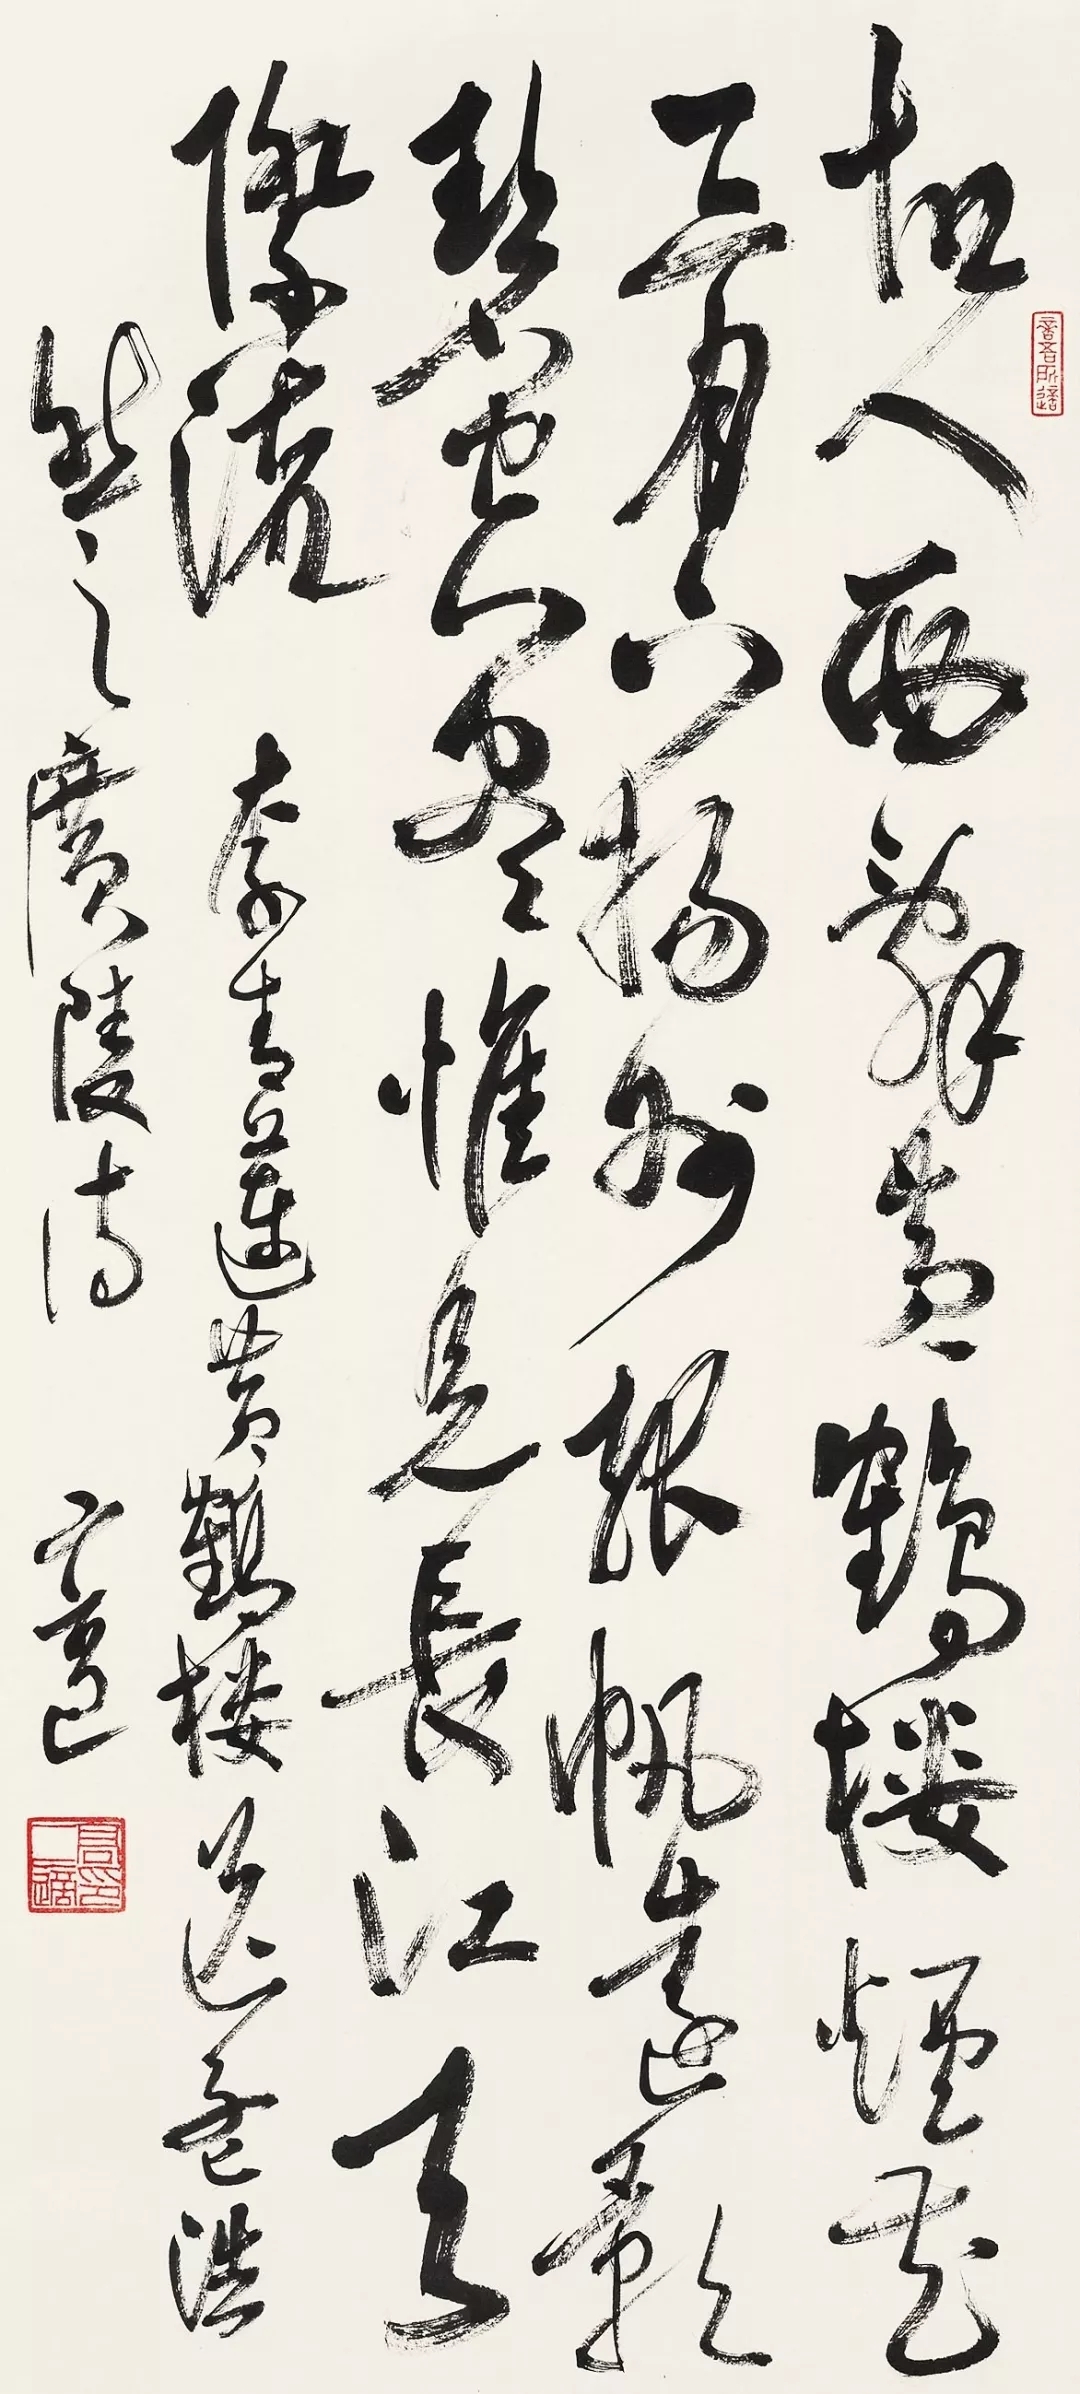 故人西辭黃鶴樓煙花
三月下揚州孤帆遠影
碧山盡惟見長江天
際流
李青蓮黃鶴樓送孟浩
然之廣陵詩 二適